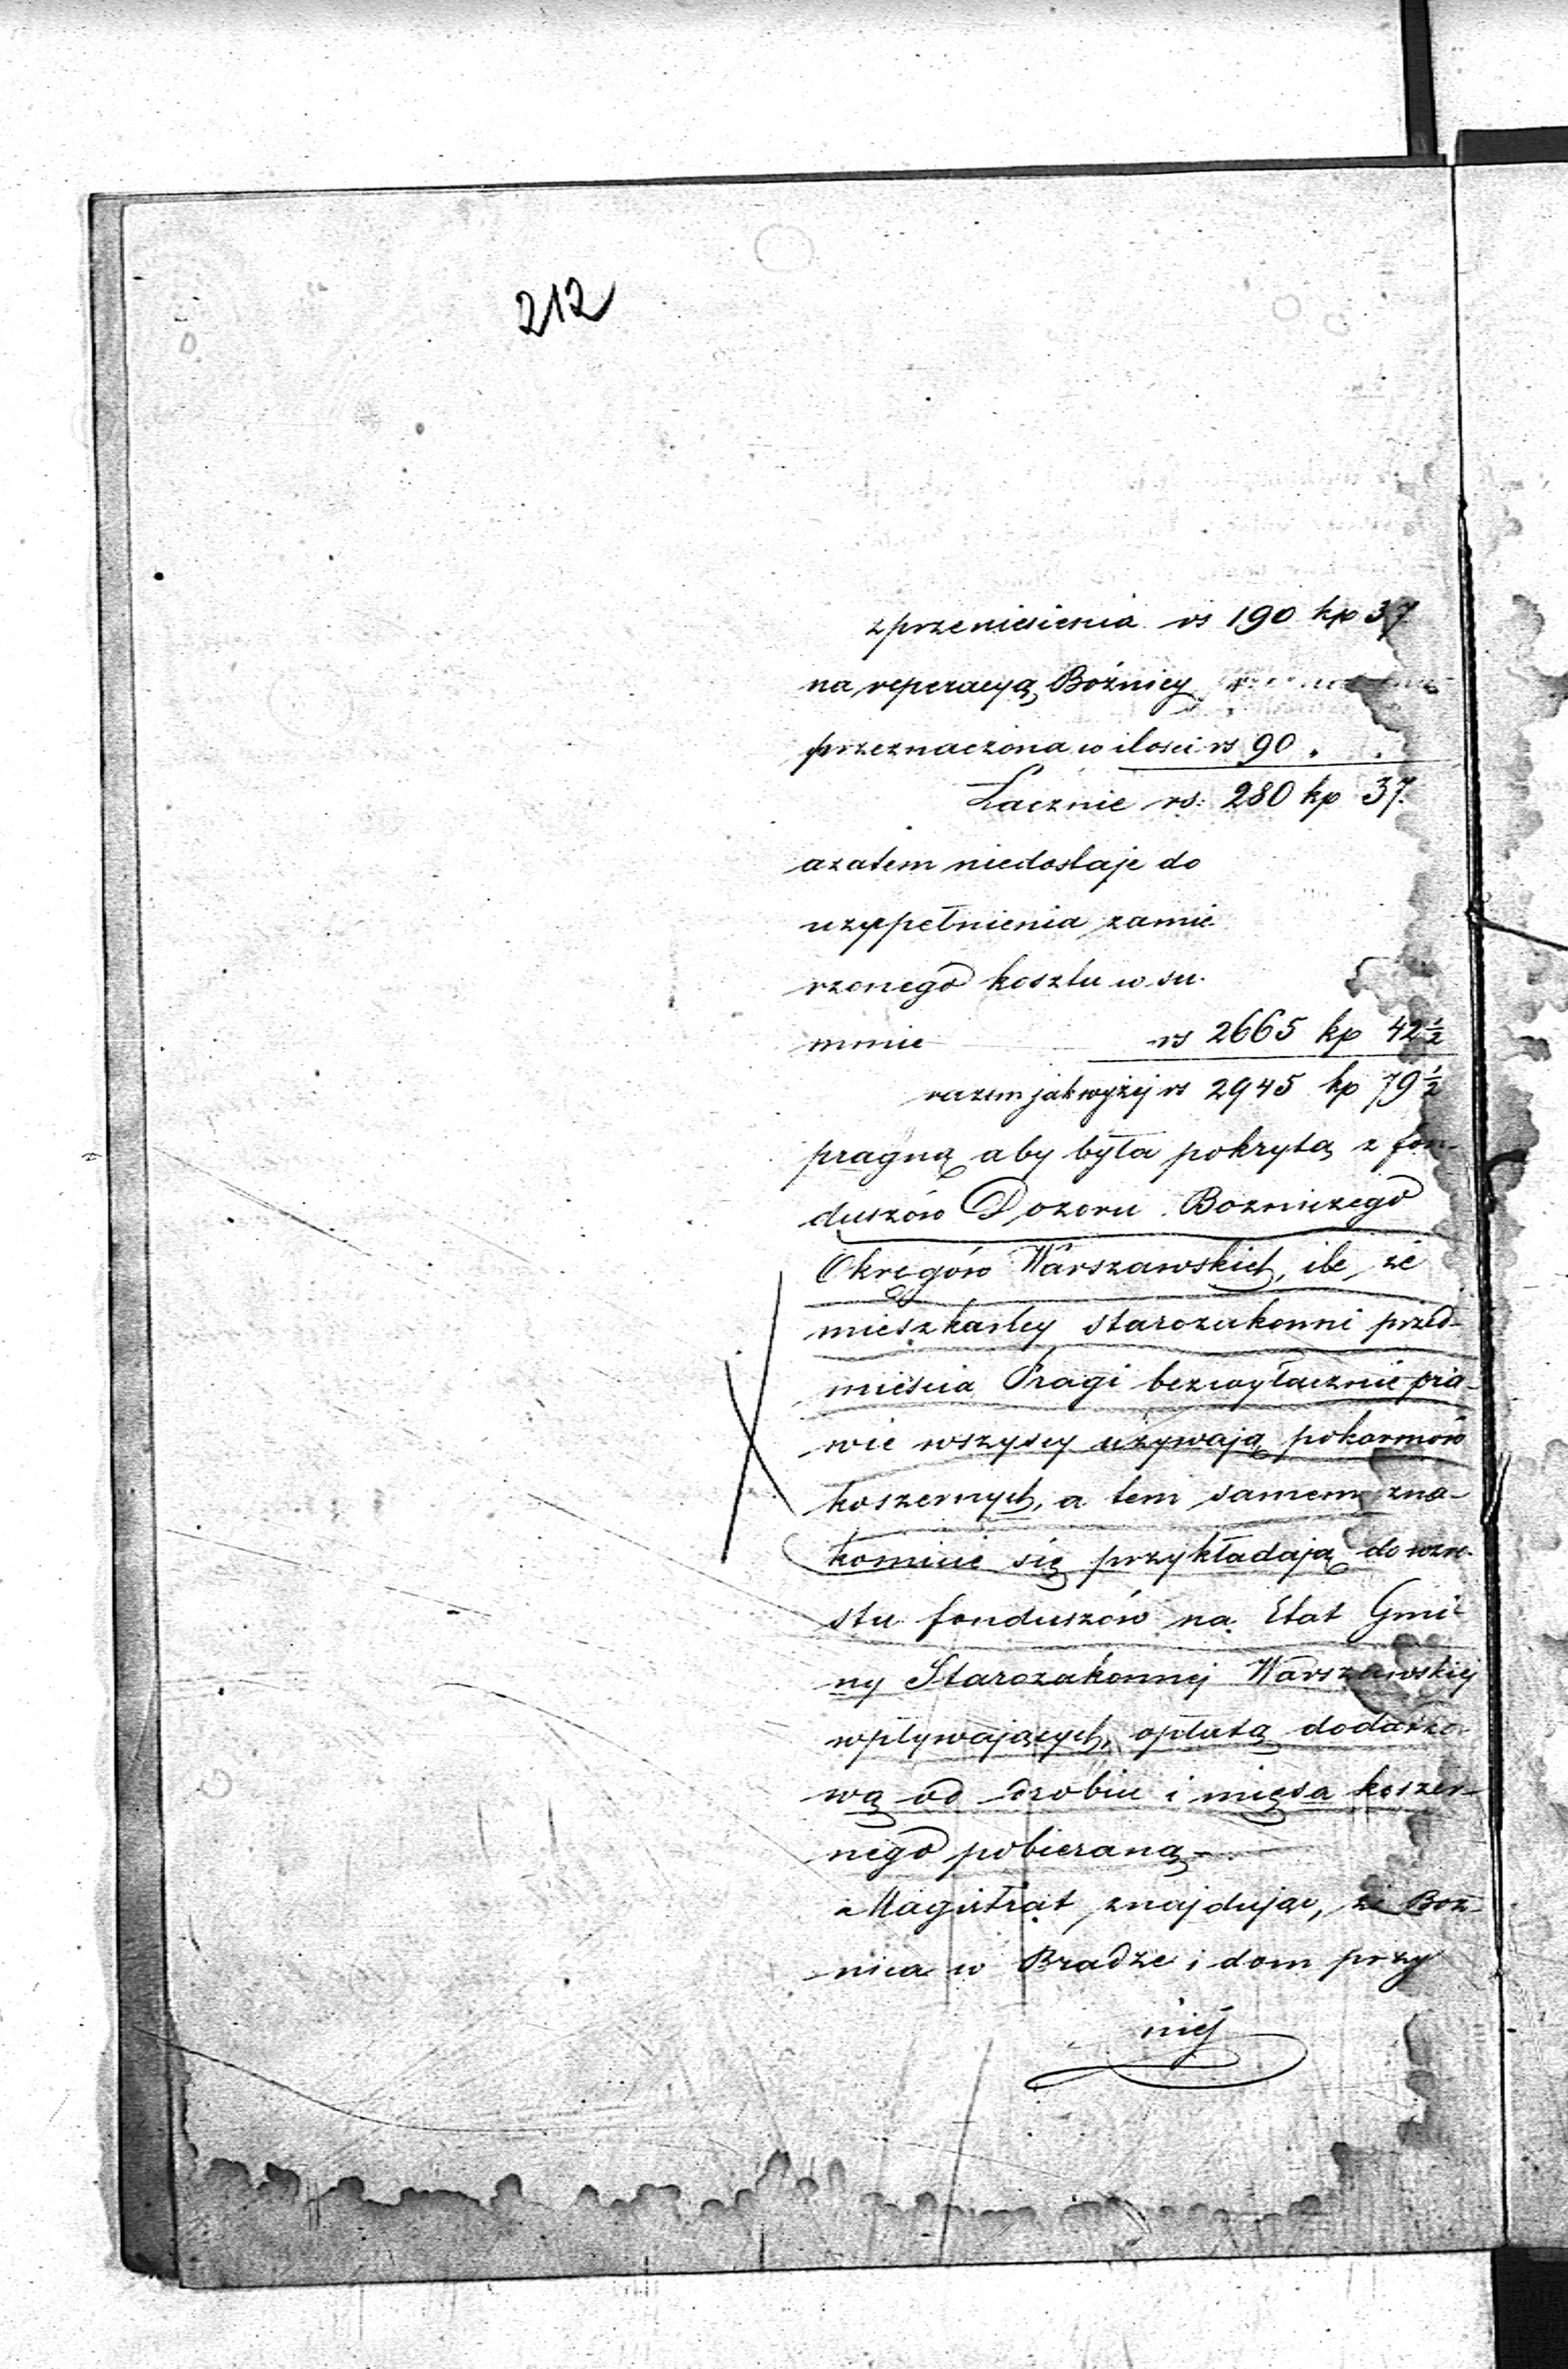 212
z przeniesienia rs 190 kp 37
na reperacyą Bożnicy
przeznaczona w ilości rs 90 „
Łącznie rs: 280 kp 37.
azatem niedostaje do
uzupełnienia zamie-
rzonego kosztu w su-
mmie rs 2665 kp 42½
razem jak wyżej rs 2945 kp 79½
pragną aby była pokrytą z fon-
duszów Dozoru Bozniczego
Okręgów Warszawskich, ile, że
mieszkańcy starozakonni przed-
mieścia Pragi bezwyłącznie pra-
wie wszyscy używają pokarmów
koszernych, a tem samem zna-
komicie się przykładają do wzro-
stu funduszów na Etat Gmi-
ny Starozakonnej Warszawskiej
wpływających, opłatą dodatko-
wą od drobiu i mięsa koszer-
nego pobieraną –
Magistrat znajdując, że Boż-
nica w Pradze i dom przy
niej